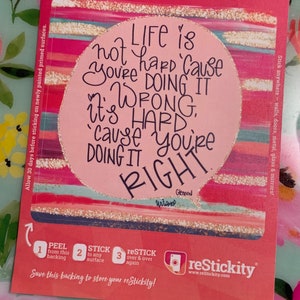 LIFE is
not HARD 'CAUSE
you're DOING IT
WRONG,
it's HARD
'cause you're
DOING IT
RIGHT
Allow 30 days before sticking on newly painted primed surfaces.
1 PEEL
from this
backing
2 STICK
to any
surface
3 reSTICK
over & over
again
reStickity
www.restickity.com
Save this backing to store your reStickity!